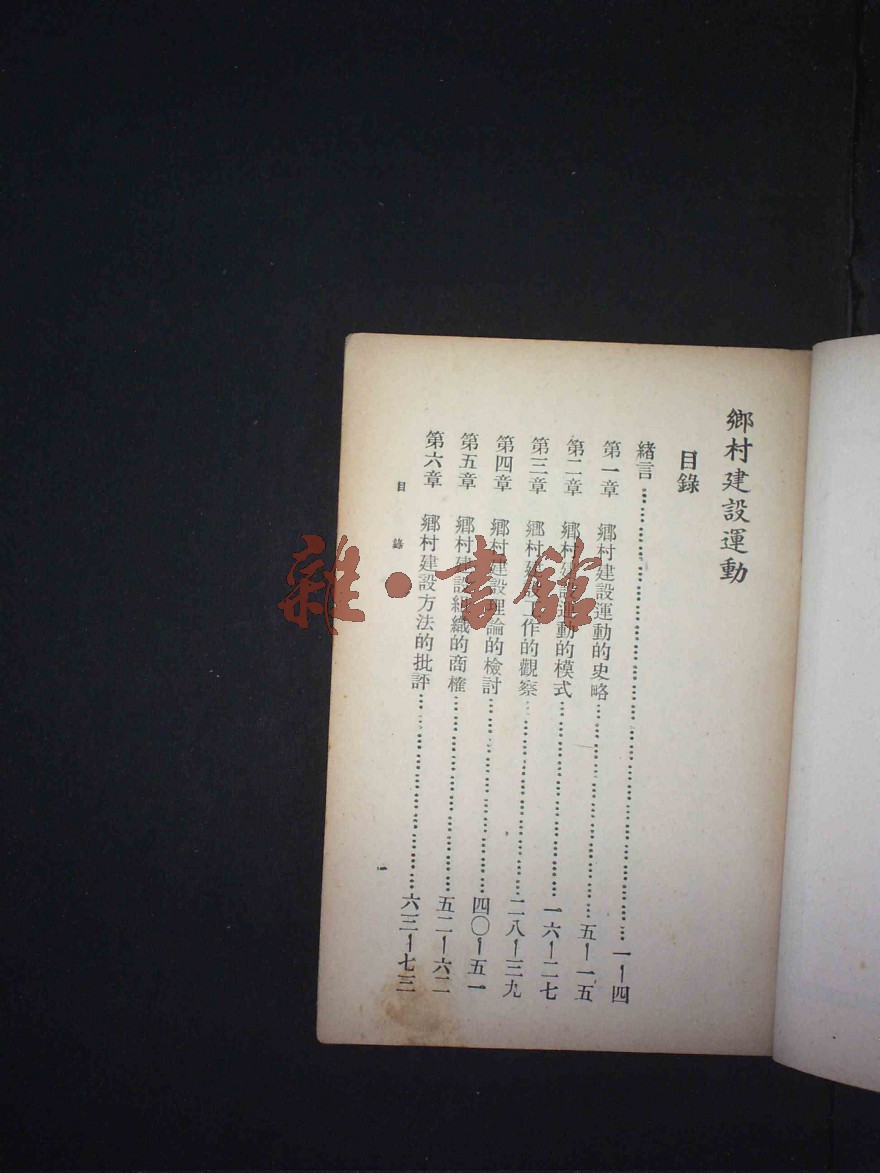 鄉村建設運動
目錄
緒言……………………………………一—四
第一章 鄉村建設運動的史略……………………五—一五
第二章 鄉村建設運動的模式……………………一六—二七
第三章 鄉村建設工作的觀察……………………二八—三九
第四章 鄉村建設理論的檢討……………………四〇—五一
第五章 鄉村建設組織的商榷……………………五二—六二
第六章 鄉村建設方法的批評……………………六三—七三
目 錄
一
雜·書館